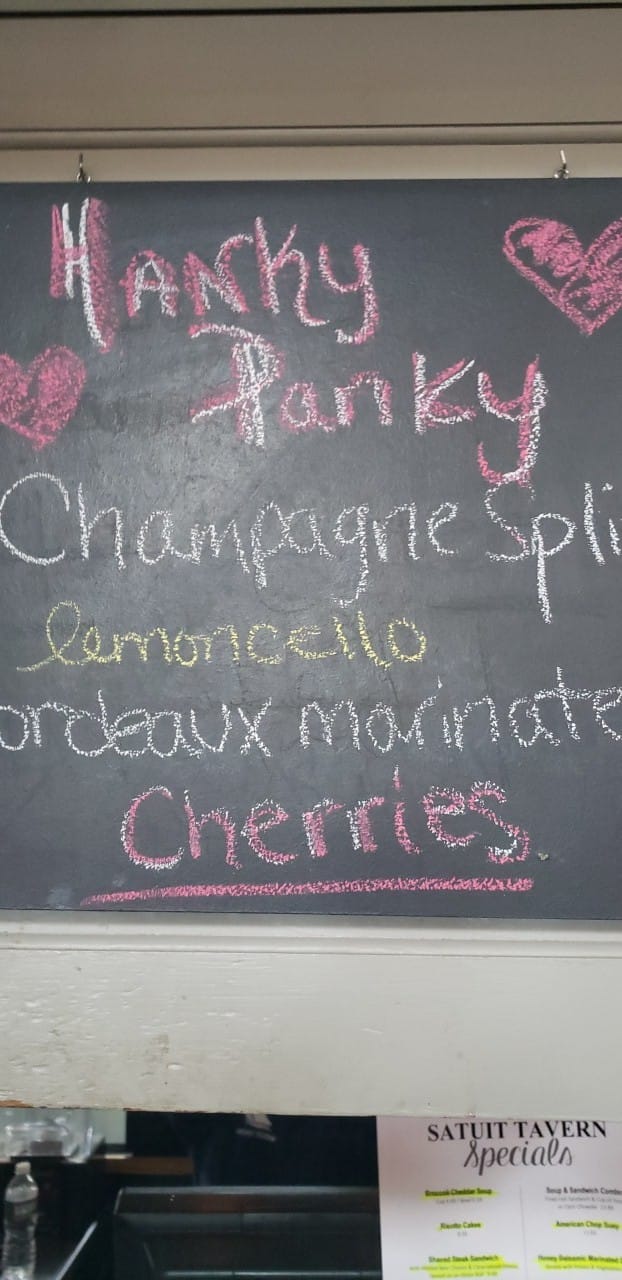 Hanky
Panky
Champagne Spli
lemoncello
ordeaux marinate
Cherries
SATUIT TAVERN
Specials
Broccoli Cheddar Soup
Soup & Sandwich Combo
Risotto Cakes
American Chop Suey
Shaved Steak Sandwich
Honey Balsamic Marinated